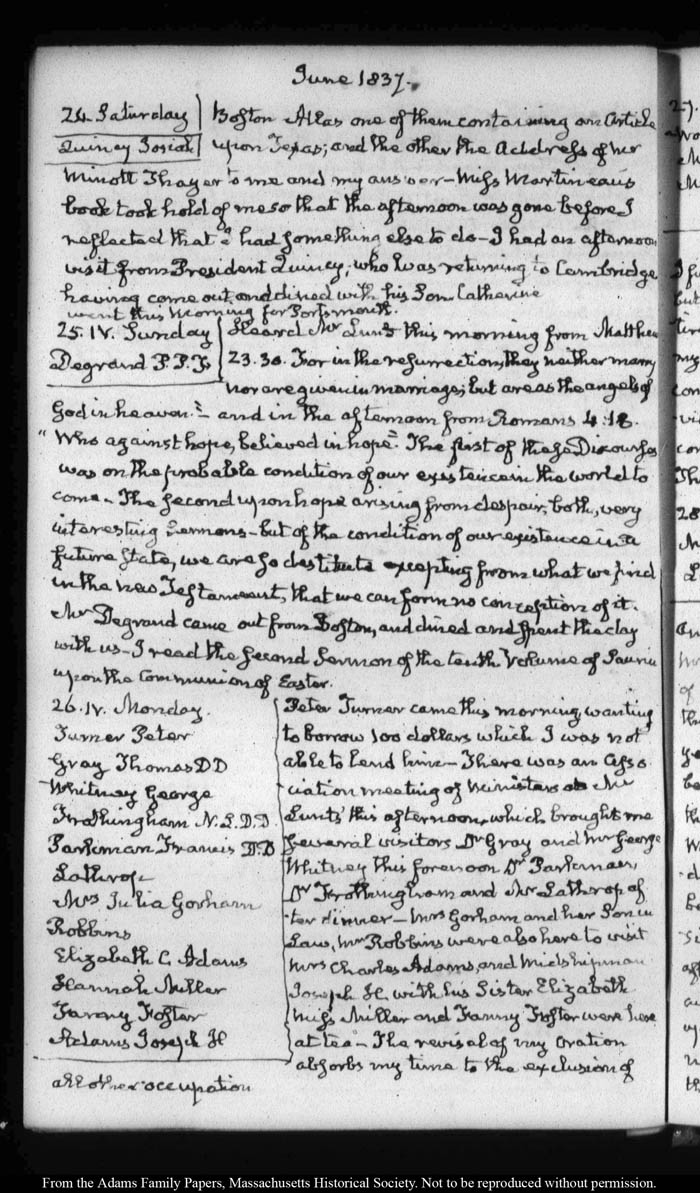 June 1837.
24. Saturday
Quincy Josiah
Boston Atlas one of them containing an Article
upon Texas; and the other the Address of Mr
Minott Thayer to me and my answer – Miss Martineau's
book took hold of me so that the afternoon was gone before I
reflected that I had something else to do – I had an afternoon
visit from President Quincy, who was returning to Cambridge
having come out and dined with his Son. Catherine
went this Morning for Portsmouth.
25. IV. Sunday
Degrand P. P. F.
Heard Mr Lunt this morning from Matthew
23.30. For in the resurrection, they neither marry
nor are given in marriage; but are as the angels of
God in heaven." – and in the afternoon from Romans 4.18.
"Who against hope, believed in hope". The first of these Discourses
was on the probable condition of our existence in the world to
come – The second upon hope arising from despair; both, very
interesting Sermons – but of the condition of our existence in a
future State, we are so destitute excepting from what we find
in the New Testament, that we can form no conception of it.
Mr Degrand came out from Boston, and dined and spent the day
with us – I read the second Sermon of the tenth Volume of Saurin
upon the Communion of Easter.
26. IV. Monday.
Turner Peter
Gray Thomas DD
Whitney George
Frothingham N. L. D.D.
Parkman Francis D.D
Lathrop
Mrs Julia Gorham
Robbins
Elizabeth C. Adams
Hannah Miller
Fanny Foster
Adams Joseph H
Peter Turner came this morning, wanting
to borrow 100 dollars which I was not
able to lend him – There was an Asso
ciation meeting of Ministers at Mr
Lunt's this afternoon, which brought me
several visitors Dr Gray and Mr George
Whitney this forenoon Dr Parkman,
Dr Frothingham and Mr Lathrop af
ter dinner – Mrs Gorham and her Son in
Law, Mr Robbins were also here to visit
Mrs Charles Adams, and Midshipman
Joseph H. with his Sister Elizabeth
Miss Miller and Fanny Foster were here
at tea – The revisal of my Oration
absorbs my time to the exclusion of
all other occupation
From the Adams Family Papers, Massachusetts Historical Society. Not to be reproduced without permission.